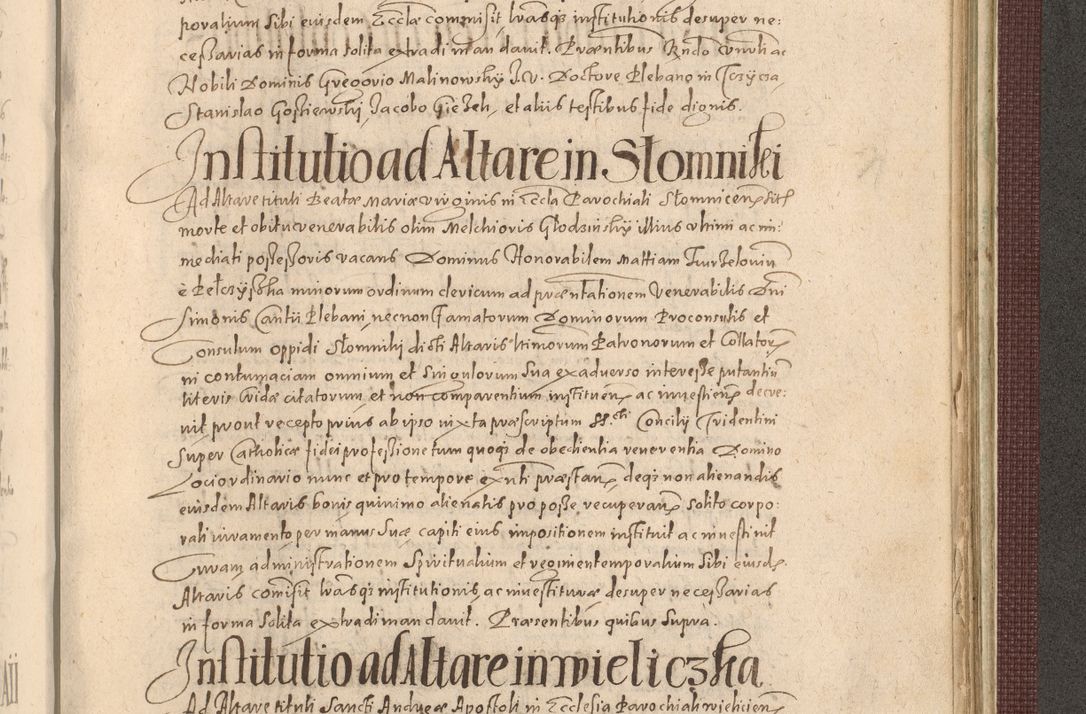 poralium sibi eiusdem Eccłæ commisit lrasqȝ institutionis desuper ne:
cessarias in forma solita extradi man davit. Præntibus Rndo Vnrli ac
Nobili Dominis Gregorio Malinowsky I.V. Doctore Plebano in Tczycza
Stanislao Gostiewsky, Jacobo Gieżek, et aliis testibus fide dignis.
Institutio ad Altare in Słomniki
Ad Altare tituli Beatæ Mariæ virginis in Eccla Parochiali Słomnicen sit
morte et obitu venerabilis olim Melchioris Głodzinsky illius vltimi ac im:
mediati possessoris vacans Dominus Honorabilem Mattiam
è Pełczyska minorum ordinum clericum ad præntationem Venerabilis Dni
Simonis Cantii Plebani, necnon Famatorum Dominorum Proconsulis et
Consulum oppidi Słomniki dicti Altaris vltimorum Patronorum et Collator
in contumaciam omnium et singulorum sua ex adverso interesse putantiu
literis Cridæ citatorum, et non comparentium instituen ac investien decre:
vit prout recepto prius ab ipso iuxta præscriptum SS.cti Concilij Tridentini
super Catholicæ fidei professione tum quoqȝ de obedientia reverentia Domino
Loci ordinario nunc et pro tempore exnti præstan, deqȝ non alienandis
eiusdem Altaris bonis quinimo alienatis pro posse recuperan solito corpo:
rali iuramento per manus suæ capiti eius impositionem instituit ac investivit
Curam administrationem spiritualium et regimen temporalium sibi eiusd.
Altaris comisit lrasqȝ institutionis, ac investituræ desuper necessarias
in forma solita extradi man davit. Præsentibus quibus supra.
Institutio ad Altare in wieliczka
Ad Altare tituli Sancti Andreæ Apostoli in Ecclesia Parochiali wielicien